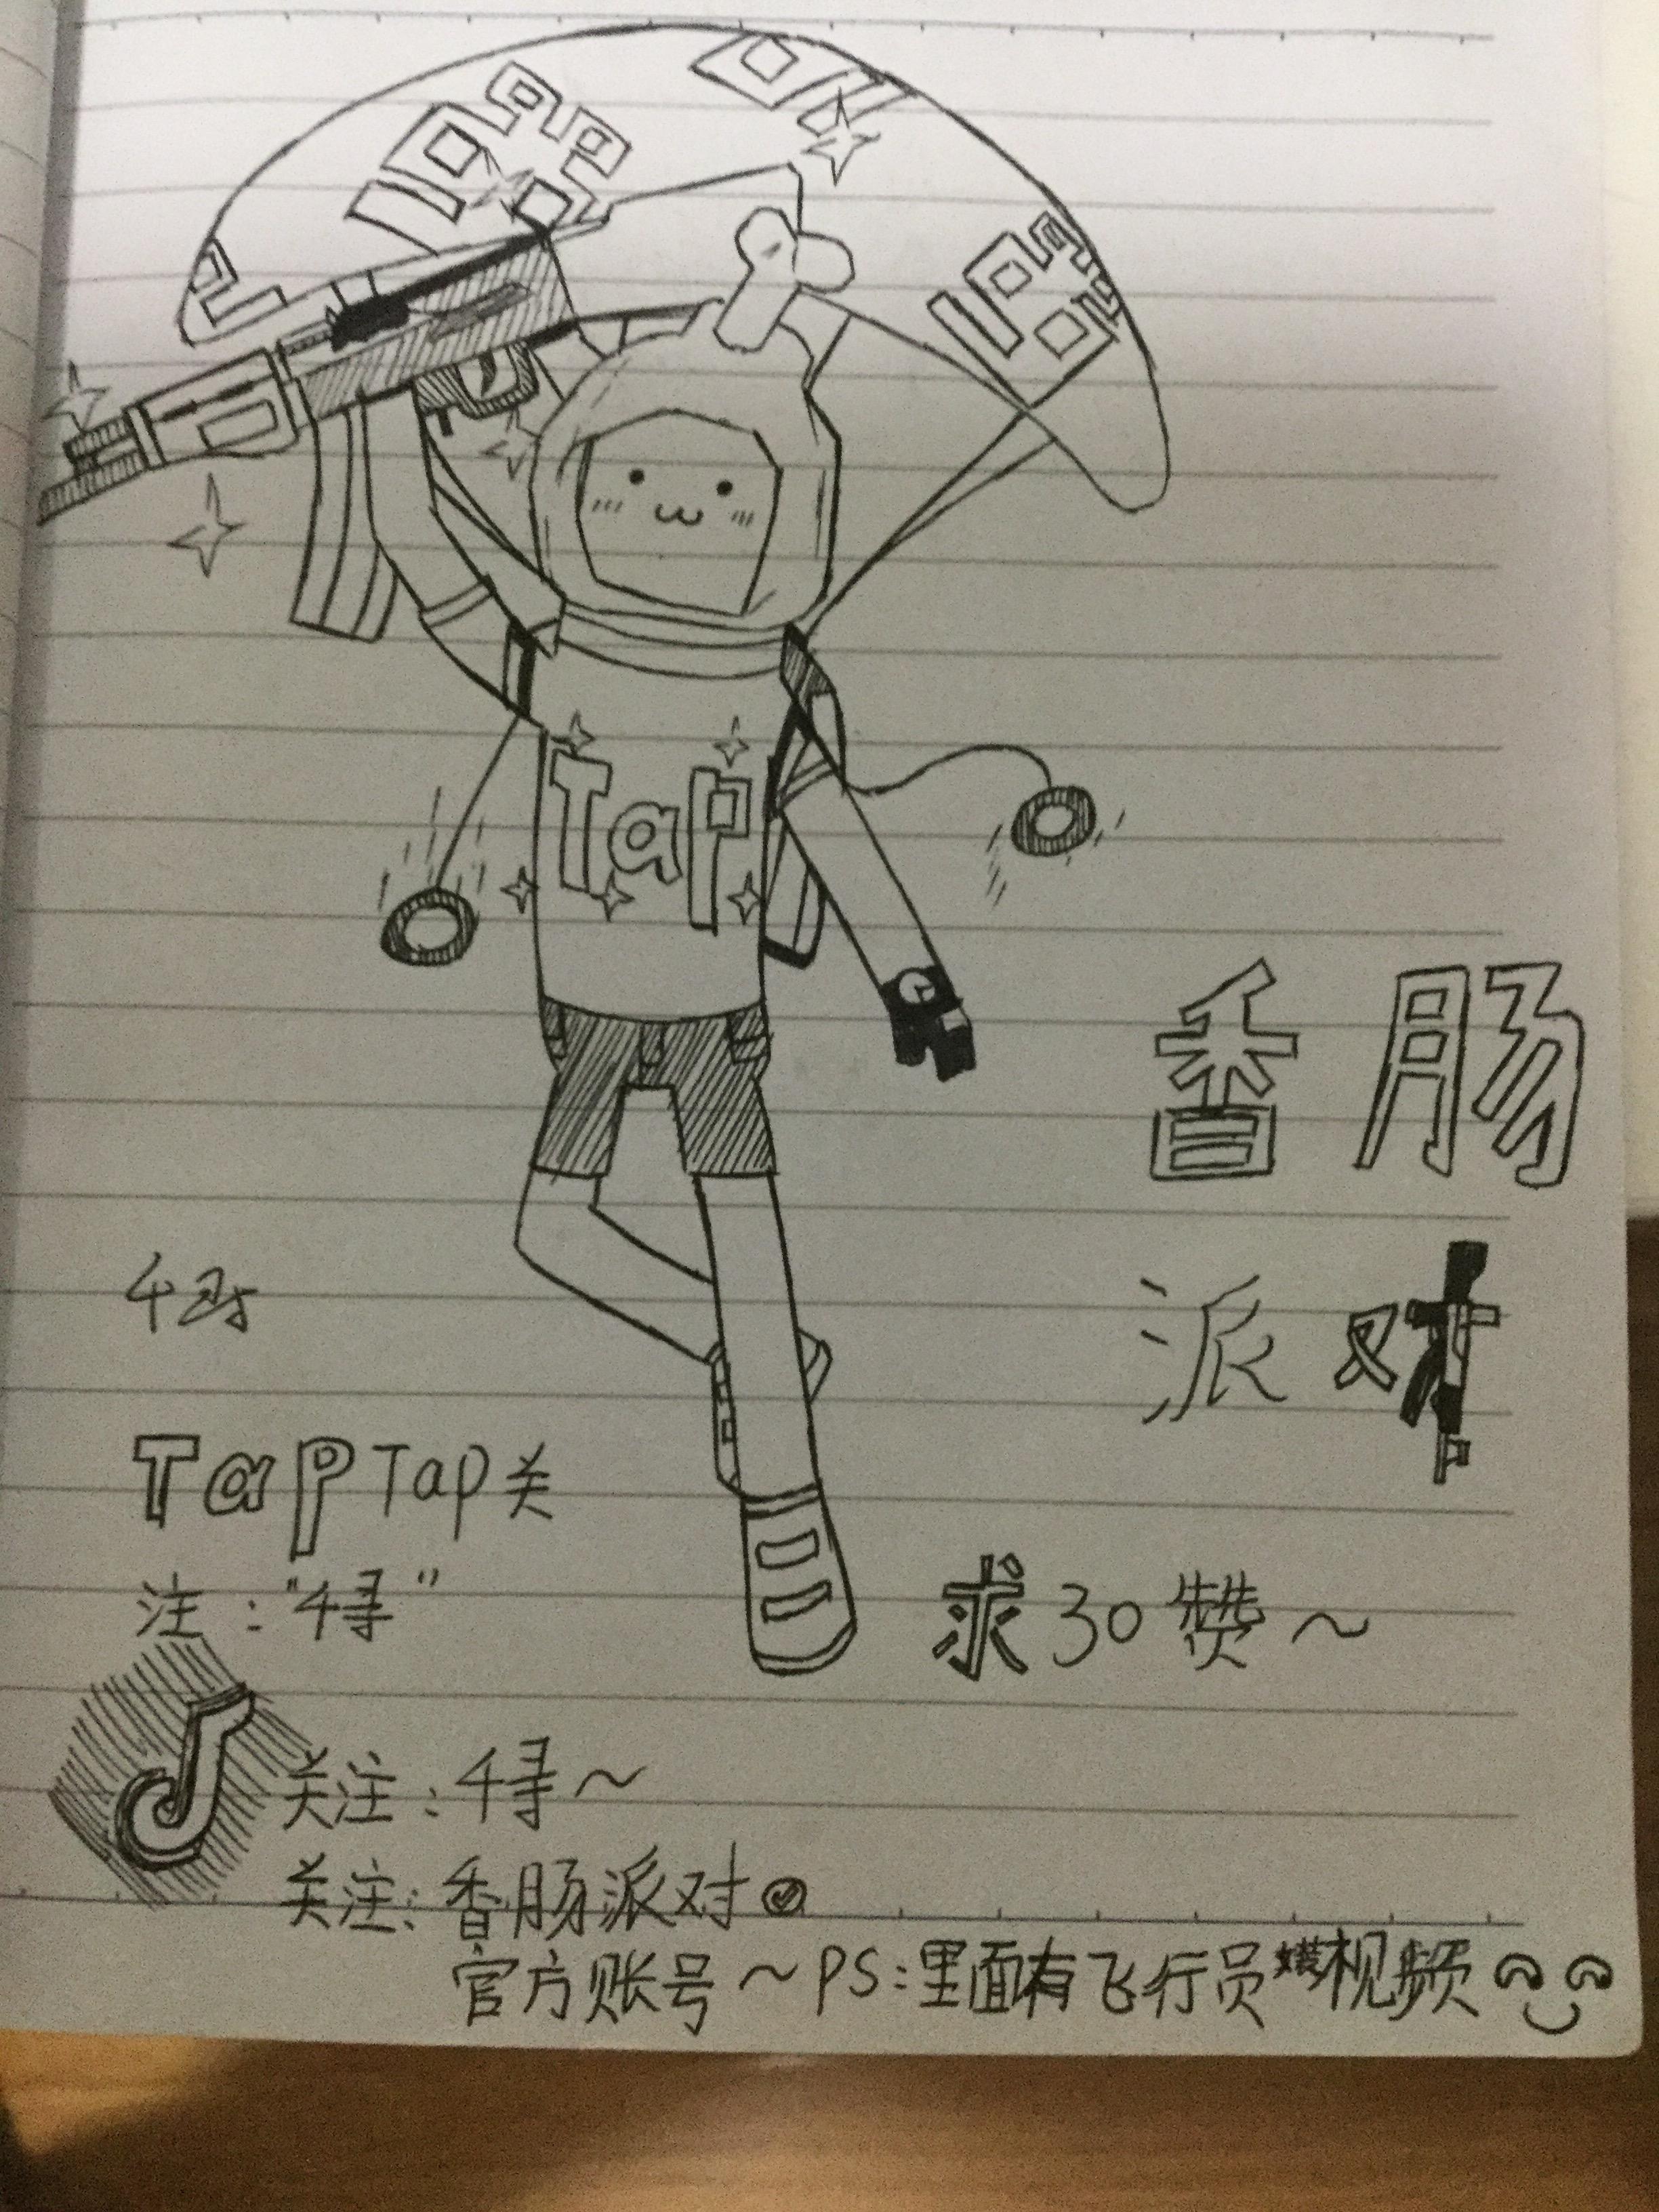 Tap
香肠
派对
TapTap关
注：“千寻”
求30赞～
关注：千寻～
关注：香肠派对
官方账号～PS：里面有飞行员 视频